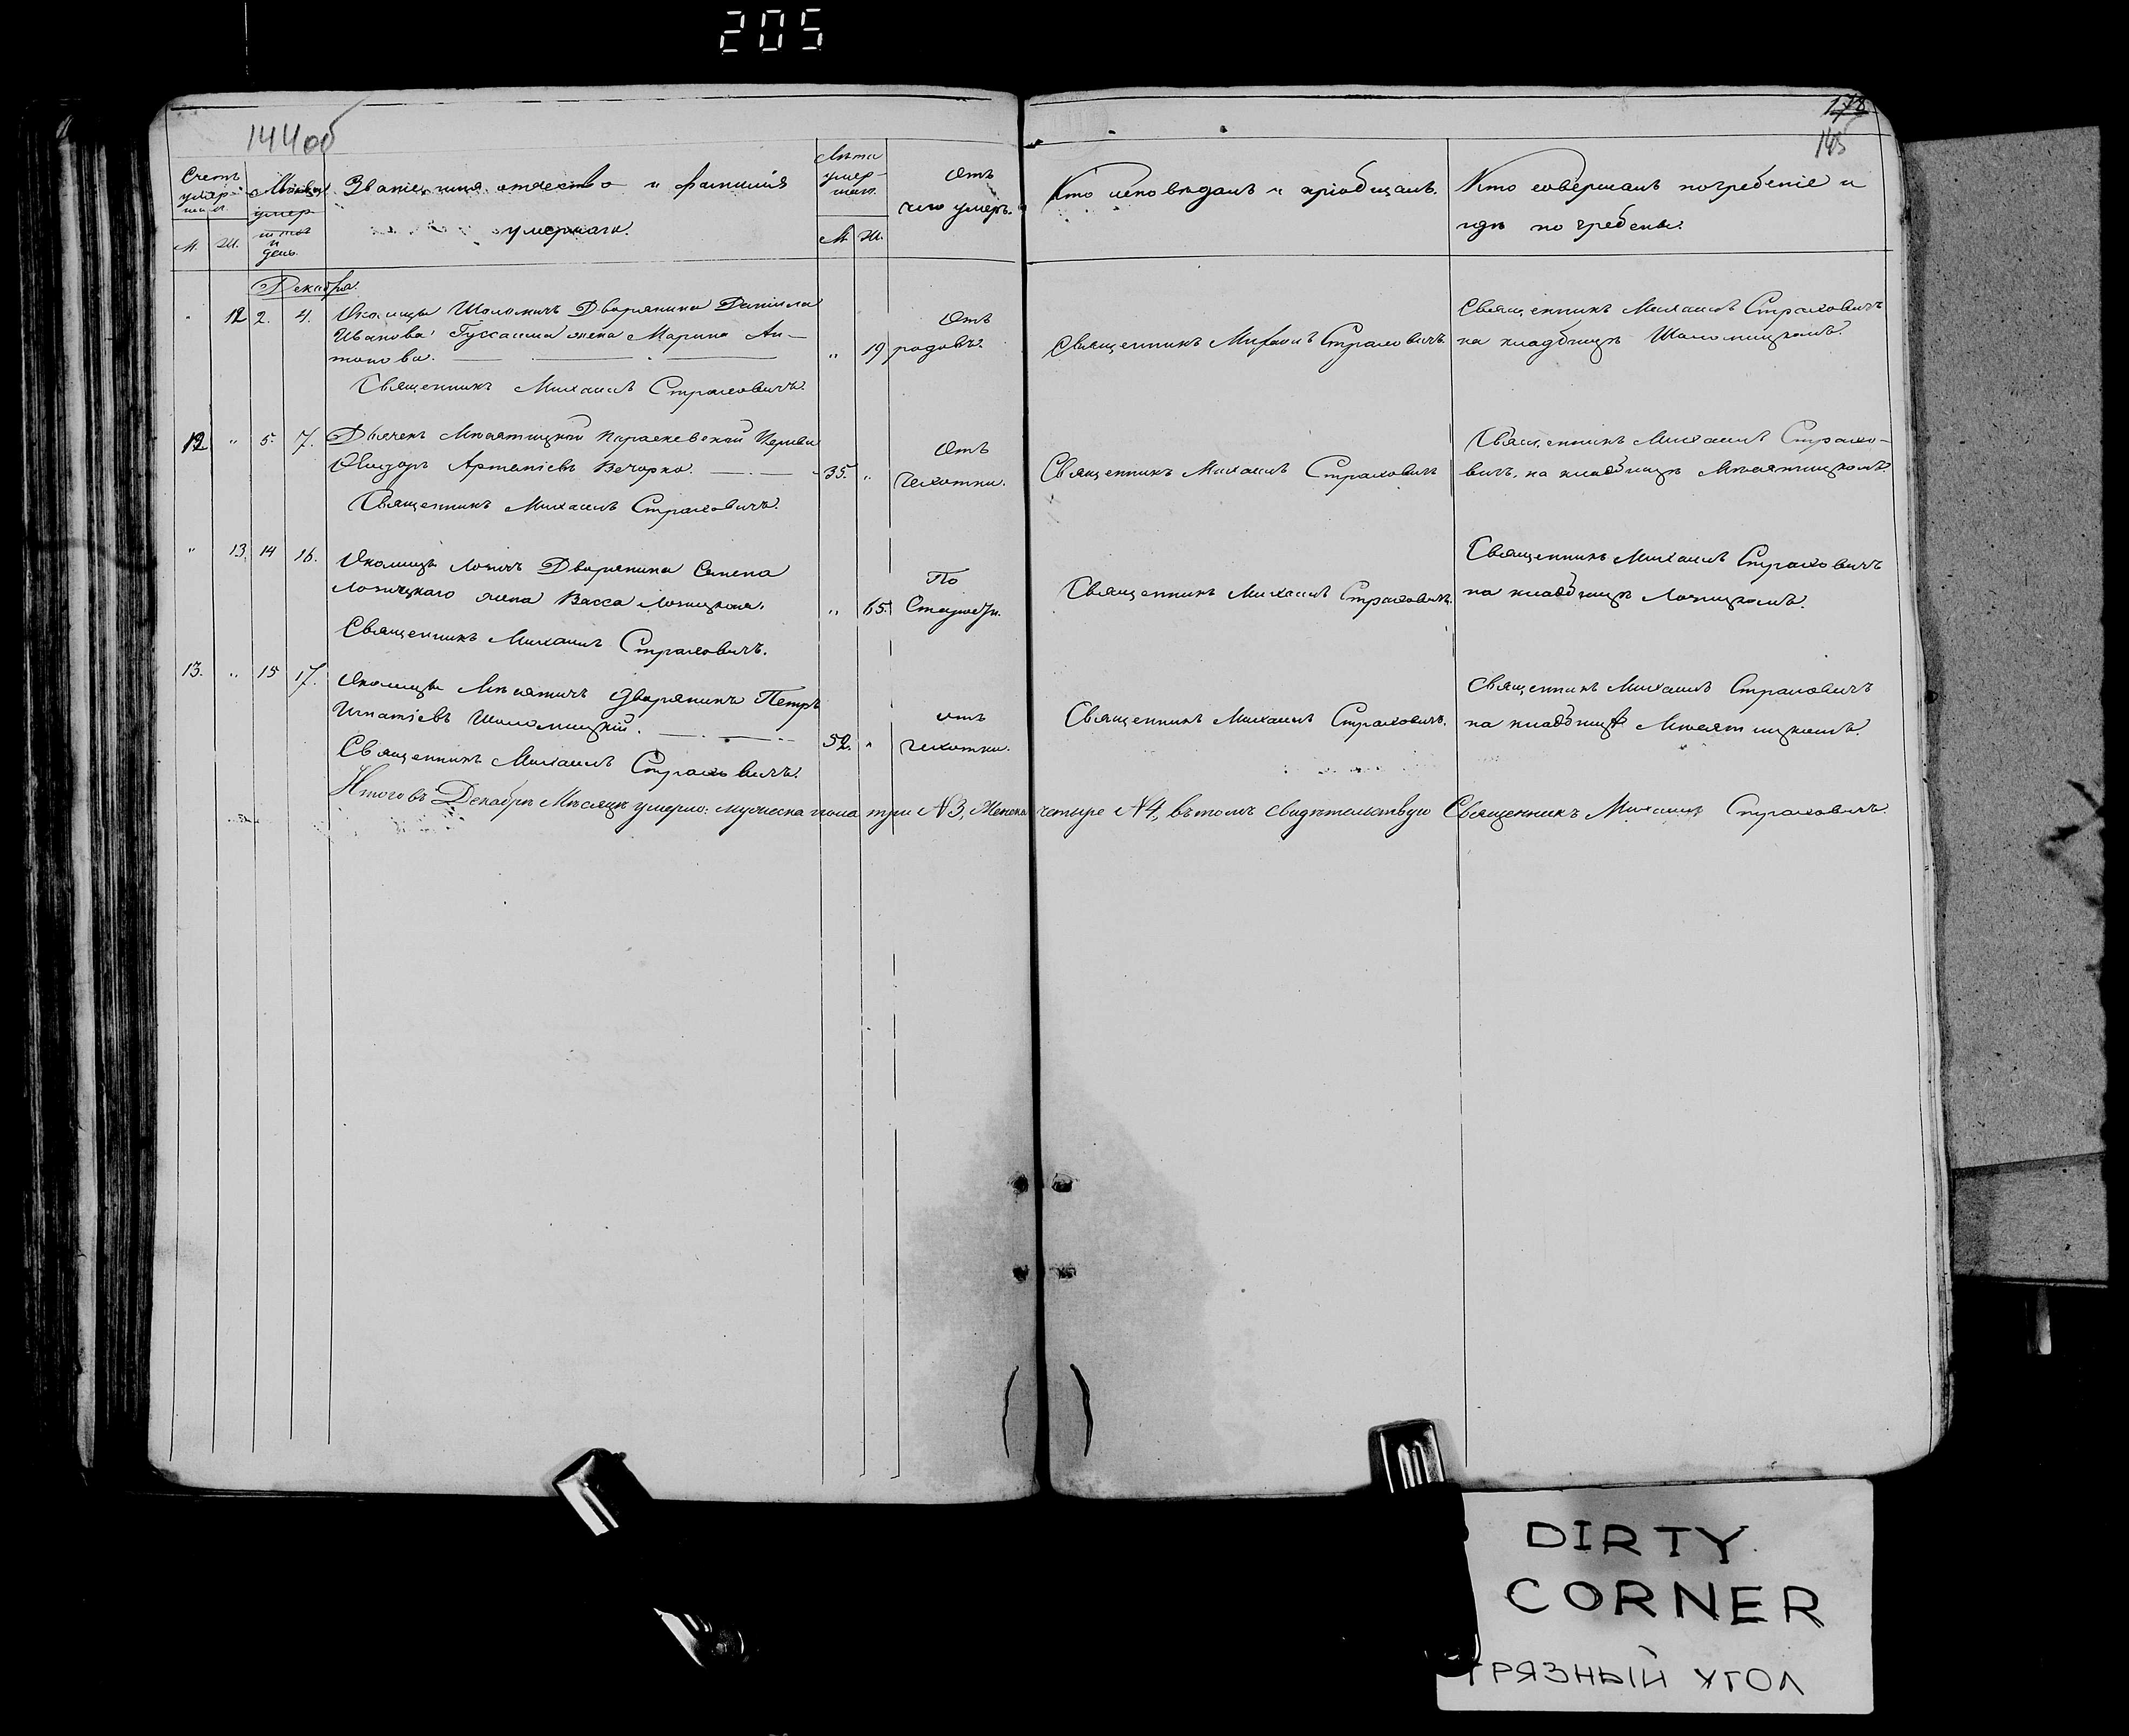 205
144об
178
145
Счетъ умер- шихъ.
Мѣсяцъ умер- тія и день.
Званіе, имя, отчество и фамилія
умершаго.
Лѣта умер- шаго.
Отъ
чего умеръ.
Кто исповѣдалъ и пріобщалъ.
Кто совершалъ погребеніе и
гдѣ погребены.
М. Ж.
М. Ж.
Декабрь.
" 12 2. 4. Околицы Шоломичъ Дворянина Даніила
Иванова Гуссаима жена Марина Ан-
тонова.
" 19
Отъ
родовъ.
Священникъ Михаилъ Страховичъ
Священникъ Михаилъ Страховичъ
на кладбищѣ Шоломицкомъ.
Священникъ Михаилъ Страховичъ.
12 " 5. 7. Дьячекъ Мнеятицкой Параскевской Церкви
Сидоръ Артеміевъ Вечорко.
35. "
Отъ
Чехотки.
Священникъ Михаилъ Страховичъ
Священникъ Михаилъ Страхо-
вичъ, на кладбищѣ
Священникъ Михаилъ Страховичъ.
" 13. 14 16. Околицы Лопичъ Дворянина Семена
Лопицкаго жена Васса Лопицкая.
" 65.
По
Старости.
Священникъ Михаилъ Страховичъ.
Священникъ Михаилъ Страховичъ
на кладбищѣ Лопицкомъ.
Священникъ Михаилъ Страховичъ.
13. " 15 17. Околицы дворянинъ Петръ
Игнатіевъ Шоломицкій.
52. "
отъ
чехотки.
Священникъ Михаилъ Страховичъ.
Священникъ Михаилъ Страховичъ
на кладбищѣ
Священникъ Михаилъ Страховичъ.
Итого въ Декабрѣ Мѣсяцѣ умерло: мужеска пола три №3, Женска четыре №4, въ томъ свидѣтельствую Священникъ Михаилъ Страховичъ.
DIRTY
CORNER
ГРЯЗНЫЙ УГОЛ